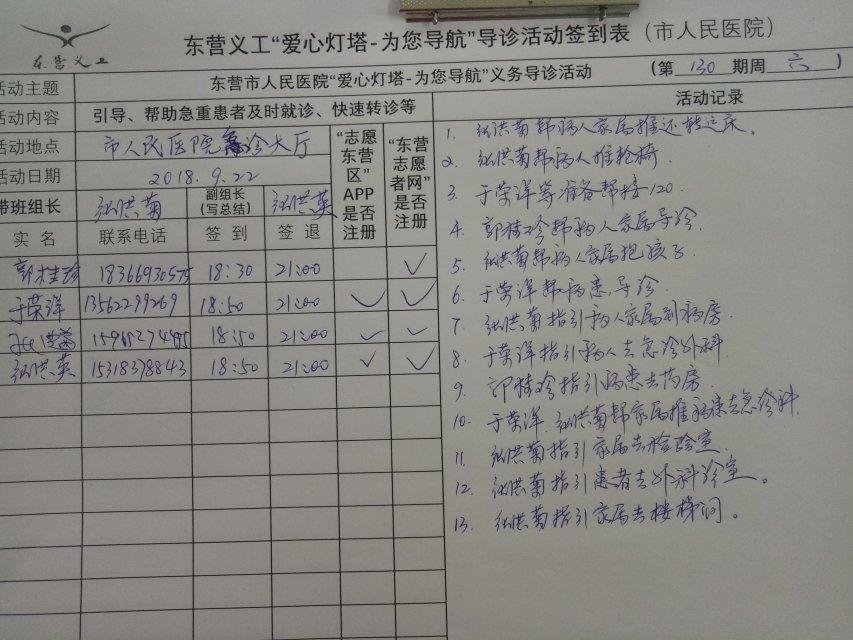 东营义工
东营义工“爱心灯塔-为您导航”导诊活动签到表（市人民医院）
活动主题 东营市人民医院“爱心灯塔-为您导航”义务导诊活动 （第 130 期周 六 ）
活动内容 引导、帮助急重患者及时就诊、快速转诊等
活动地点 市人民医院急诊大厅
活动日期 2018.9.22
带班组长 张洪菊 副组长（写总结） 张洪英
“志愿东营区”APP是否注册
“东营志愿者网”是否注册
实名 联系电话 签到 签退
郭桂珍 18366930575 18:30 21:00 ✓
于荣洋 13562299269 18:50 21:00 ✓ ✓
张洪菊 15965274495 18:50 21:00 ✓ ✓
张洪英 15318378843 18:50 21:00 ✓ ✓
活动记录
1. 张洪菊帮病人家属推还转运床。
2. 张洪菊帮病人推轮椅
3. 于荣洋等准备帮接120.
4. 郭桂珍帮病人家属导诊
5. 张洪菊帮病人家属抱孩子
6. 于荣洋帮病患导诊
7. 张洪菊指引病人家属到病房
8. 于荣洋指引病人去急诊外科
9. 郭桂珍指引病患去药房
10. 于荣洋.张洪菊帮家属推病患去急诊科
11. 张洪菊指引家属去检验室
12. 张洪菊指引患者去外科诊室。
13. 张洪菊指引家属去楼梯间。